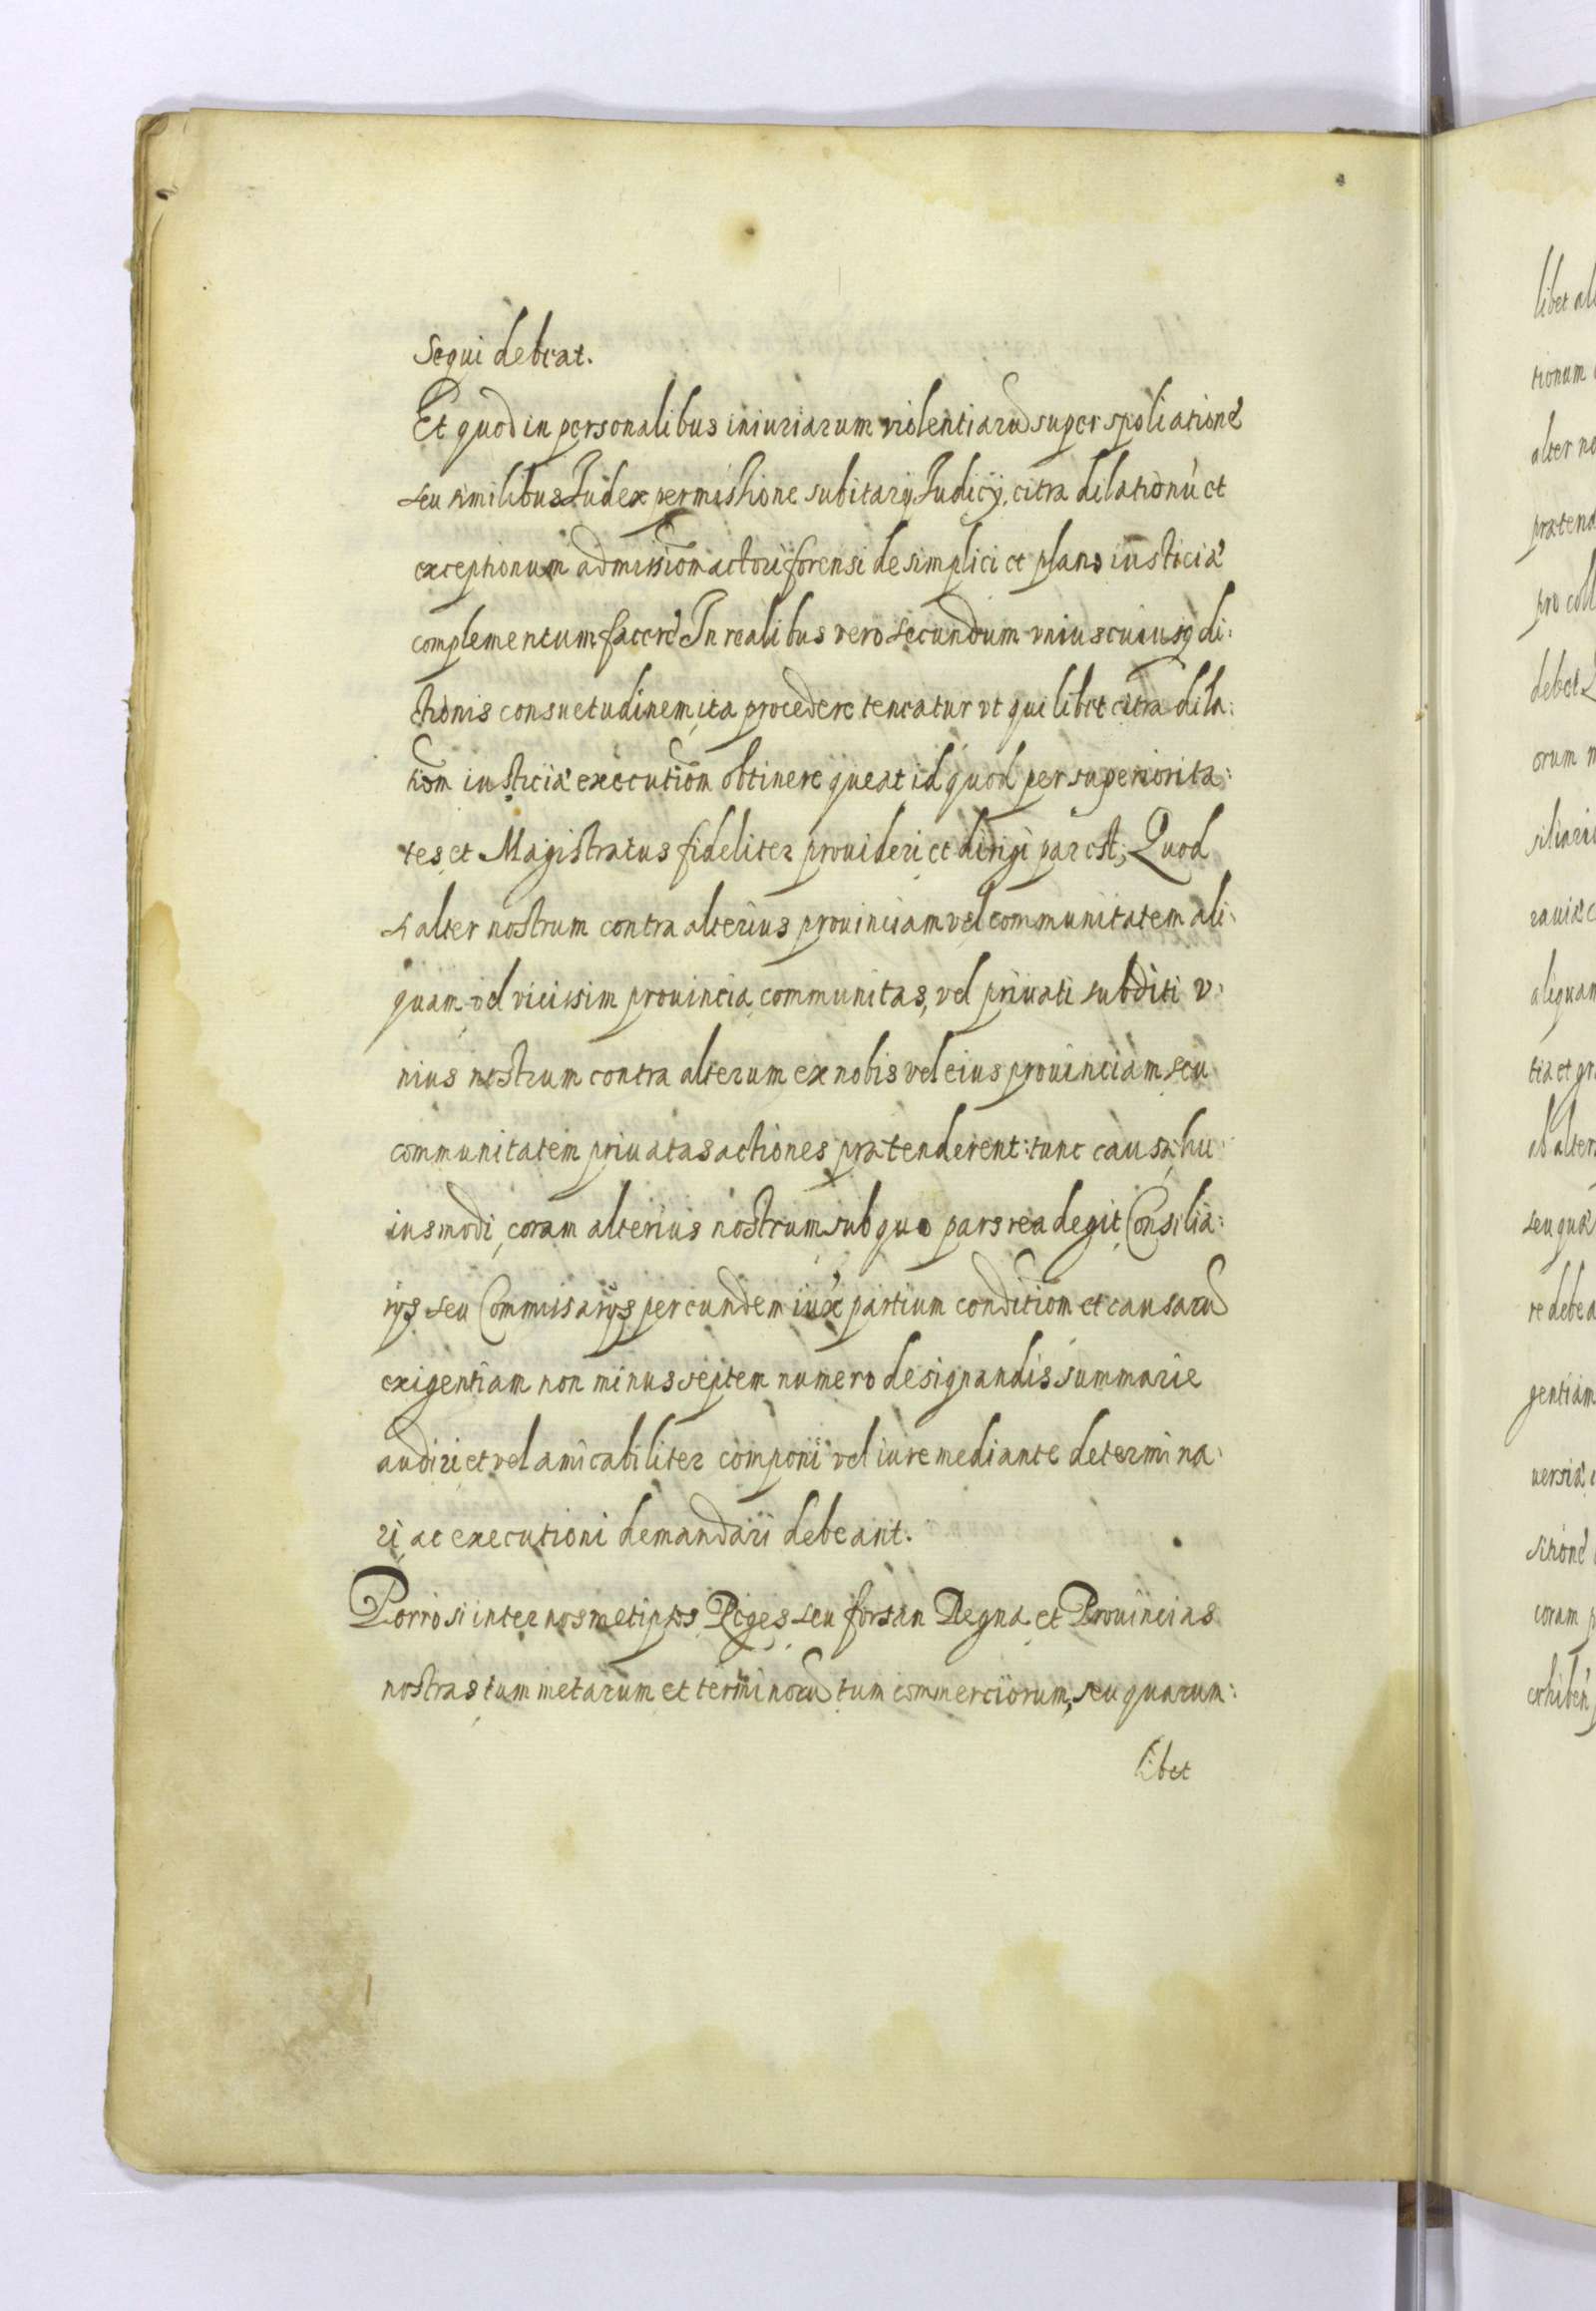 sequi debeat.
Et quod in personalibus iniuriarum violentiarũ super spoliatione
seu similibus Iudex permissione subitarij Iudicij, citra dilationũ et
exceptionum admissiom̄ actori forensi de simplici et plano iusticiæ
complementum facere In realibus vero secundum vniuscuiusq di:
ctionis consuetudinem, ita procedere teneatur vt quilibet citra dila:
tiom̄ iusticiæ executiom̄ obtinere queat id quod per superiorita:
tes et Magistratus fideliter prouideri et dirigi par est, Quod
si alter nostrum contra alterius prouinciam vel communitatem ali:
quam vel vicissim prouincia communitas, vel priuati subditi v:
nius nostrum contra alterum ex nobis vel eius prouinciam seu
communitatem priuatas actiones prætenderent: tunc causæ hu:
iusmodi, coram alterius nostrum sub quo pars rea degit Consilia:
rijs seu Commissarijs per eundem iux̃ partium conditiom̄ et causarũ
exigentiam non minus septem numero designandis summarie
audiri et vel amicabiliter componi vel iure mediante determina:
ri ac executioni demandari debeant.
Porro si inter nosmetipsos Reges seu forsan Regna et Prouincias
nostras tum metarum et terminorũ tum commerciorum, seu quarum:
libet